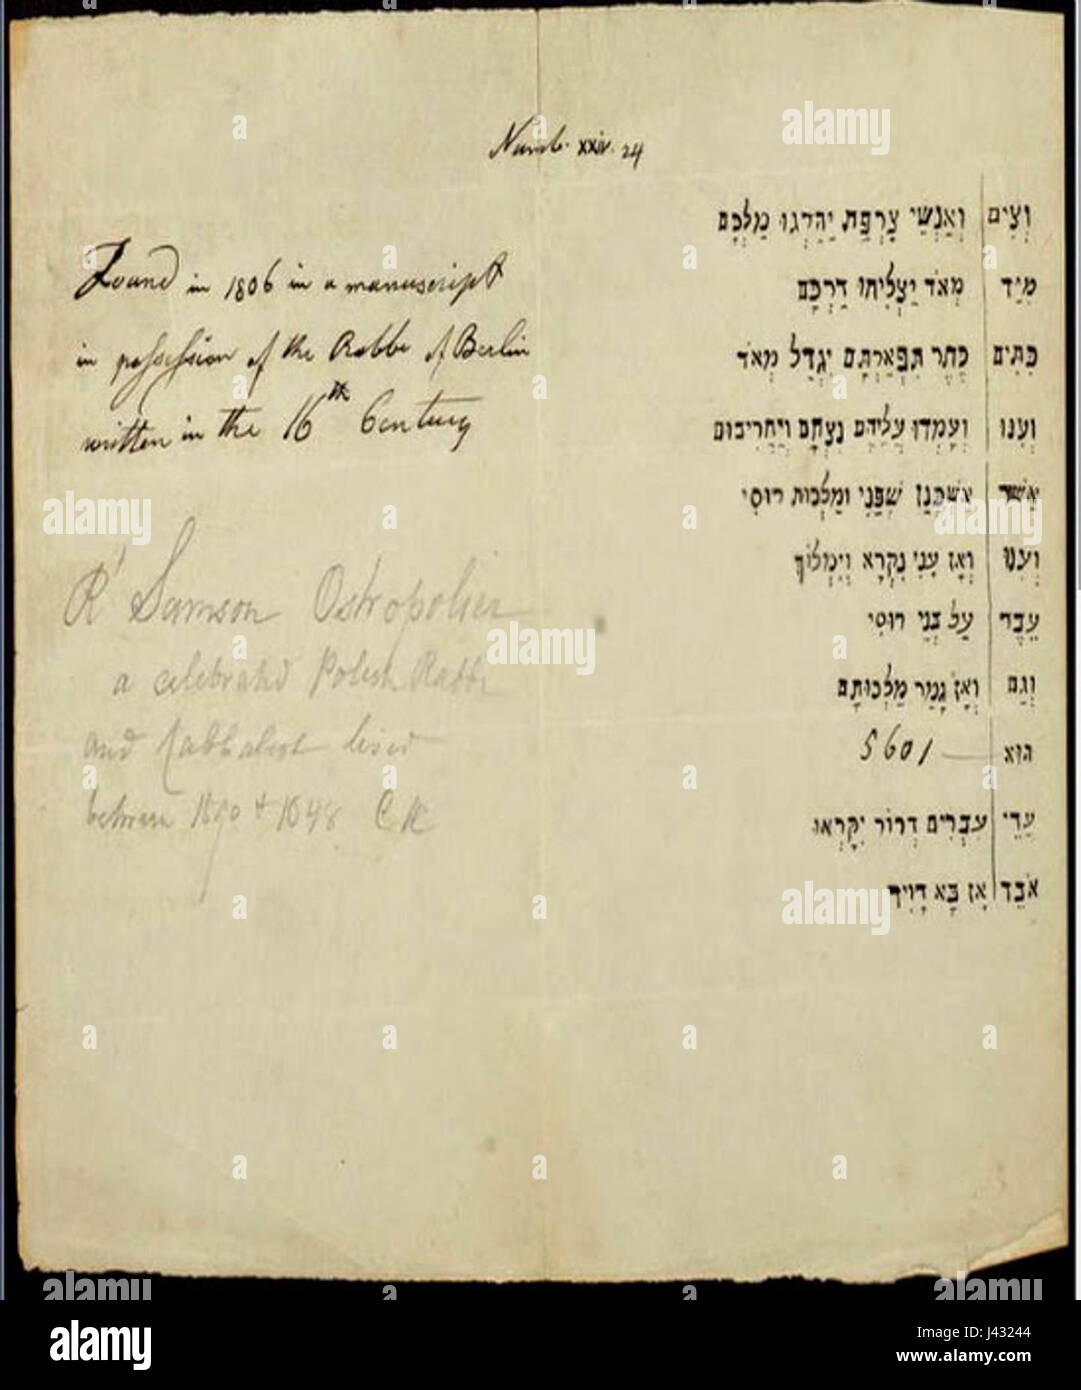 Numb. xxiv. 24
Found in 1806 in a manuscript
in possession of the Rabbi of Berlin
written in the 16th Century
R' Samson Ostropolier
a celebrated Polish Rabbi
and Cabbalist lived
between & 1648
וְצִים וְאַנְשֵׁי צָרְפַת יַהַרְגוּ מַלְכָּם
מִיַּד מְאֹד יַצְלִיחוּ דַרְכָּם
כִּתִּים כֶּתֶר תִּפְאַרְתָּם יִגְדַּל מְאֹד
וְעִנּוּ וְעָמְדוּ עֲלֵיהֶם נִצְחָם וְיַחֲרִיבוּם
אַשּׁוּר אַשְׁכְּנַז שְׁפַּנִי וּמַלְכוּת רוּסִי
וְעִנּוּ וְאָז עָנִי נִקְרָא וְיִמְלוֹךְ
עֵבֶר עַל בְּנֵי רוּסִי
וְגַם וְאָז גָמַר מַלְכוּתָם
הוּא — 5601
עֲדֵי עִבְרִים דְרוֹר יִקְרְאוּ
אֹבֵד אָז בָּא דָוִיד
alamy
alamy
J43244
www.alamy.com